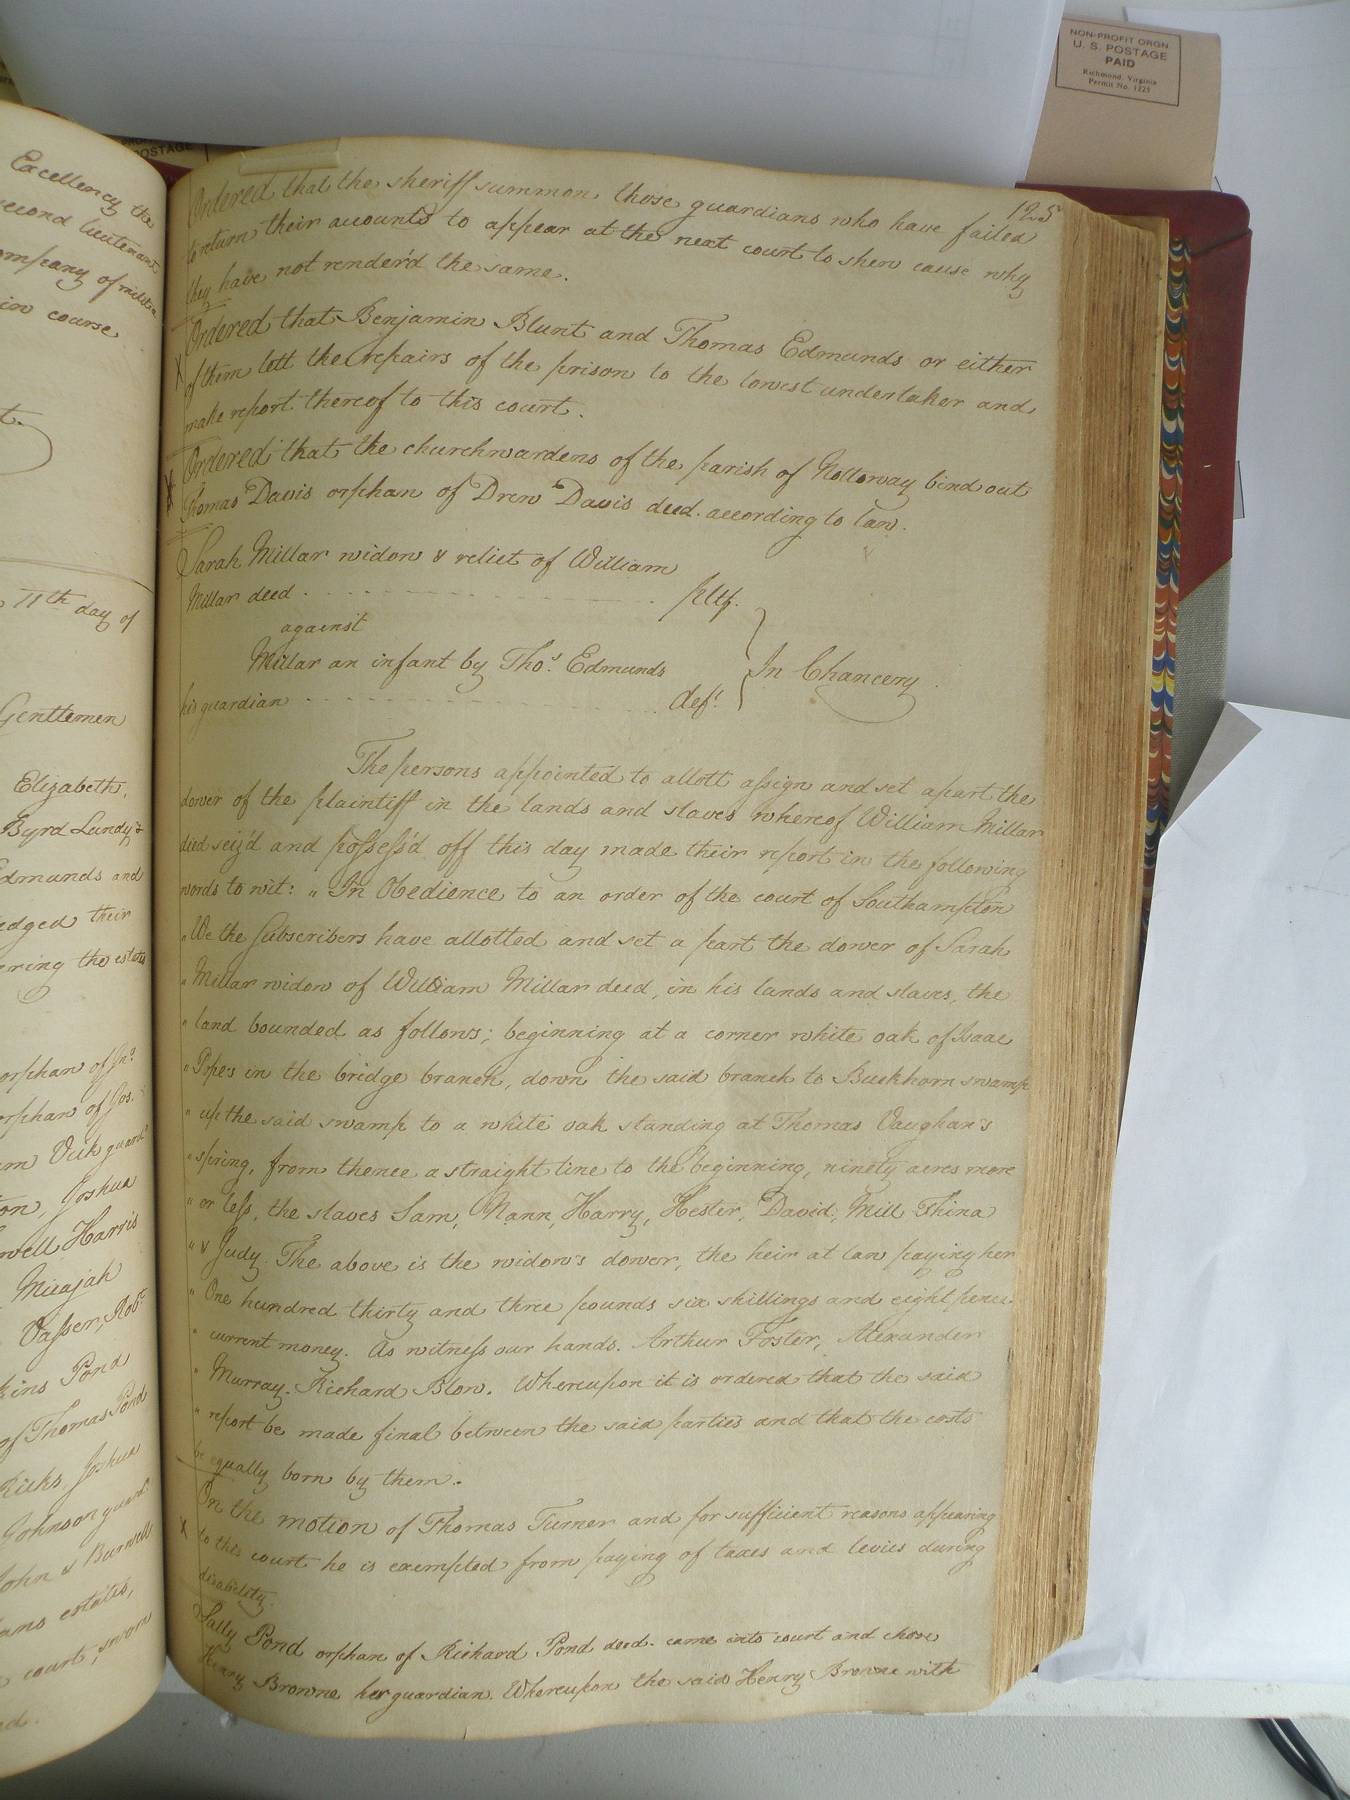 NON-PROFIT ORGN.
U. S. POSTAGE
PAID
Richmond, Virginia
Permit No. 1225
POSTAGE
Excellency the
second lieutenant
ompany of militia
in course
t.
11th day of
Gentlemen
Elizabeth,
Byrd Lundy &
Edmunds and
edged their
ering the estates
orphan of Jno.
orphan of Jos.
m Vick guard
ton, Joshua
well Harris
Micajah
Vasser, Robt.
kins Pond
of Thomas Pond
Ricks, Joshua
Johnson guard
John & Burwell
ans estates,
court, sworn
ed.
125
Ordered that the sheriff summon those guardians who have failed
to return their accounts to appear at the next court to shew cause why
they have not render'd the same.
Ordered that Benjamin Blunt and Thomas Edmunds or either
of them lett the repairs of the prison to the lowest undertaker and
make report thereof to this court.
Ordered that the churchwardens of the parish of Nottoway bind out
Thomas Davis orphan of Drew Davis deed. according to law.
Sarah Millar widow & relict of William
Millar deed pltf.
against
Millar an infant by Thos. Edmunds
his guardian deft.
In Chancery.
The persons appointed to allott assign and set apart the
dower of the plaintiff in the lands and slaves whereof William Millar
died seiz'd and possess'd off this day made their report in the following
words to wit: "In Obedience to an order of the court of Southampton
"We the subscribers have allotted and set a part the dower of Sarah
"Millar widow of William Millar deed, in his lands and slaves, the
"land bounded as follows; beginning at a corner white oak of Isaac
"Pope's in the bridge branch, down the said branch to Buckhorn swamp
"up the said swamp to a white oak standing at Thomas Vaughan's
"spring, from thence a straight line to the beginning, ninety acres more
"or less, the slaves Sam, Nann, Harry, Hester, David, Mill Thina
"& Judy. The above is the widow's dower, the heir at law paying her
"One hundred thirty and three pounds six shillings and eight pence
"current money. As witness our hands. Arthur Foster, Alexander
"Murray. Richard Blow. Whereupon it is ordered that the said
"report be made final between the said parties and that the costs
be equally born by them.
On the motion of Thomas Turner and for sufficient reasons appearing
to this court he is exempted from paying of taxes and levies during
disability.
Sally Pond orphan of Richard Pond deed. came into court and chose
Henry Browne her guardian. Whereupon the said Henry Browne with